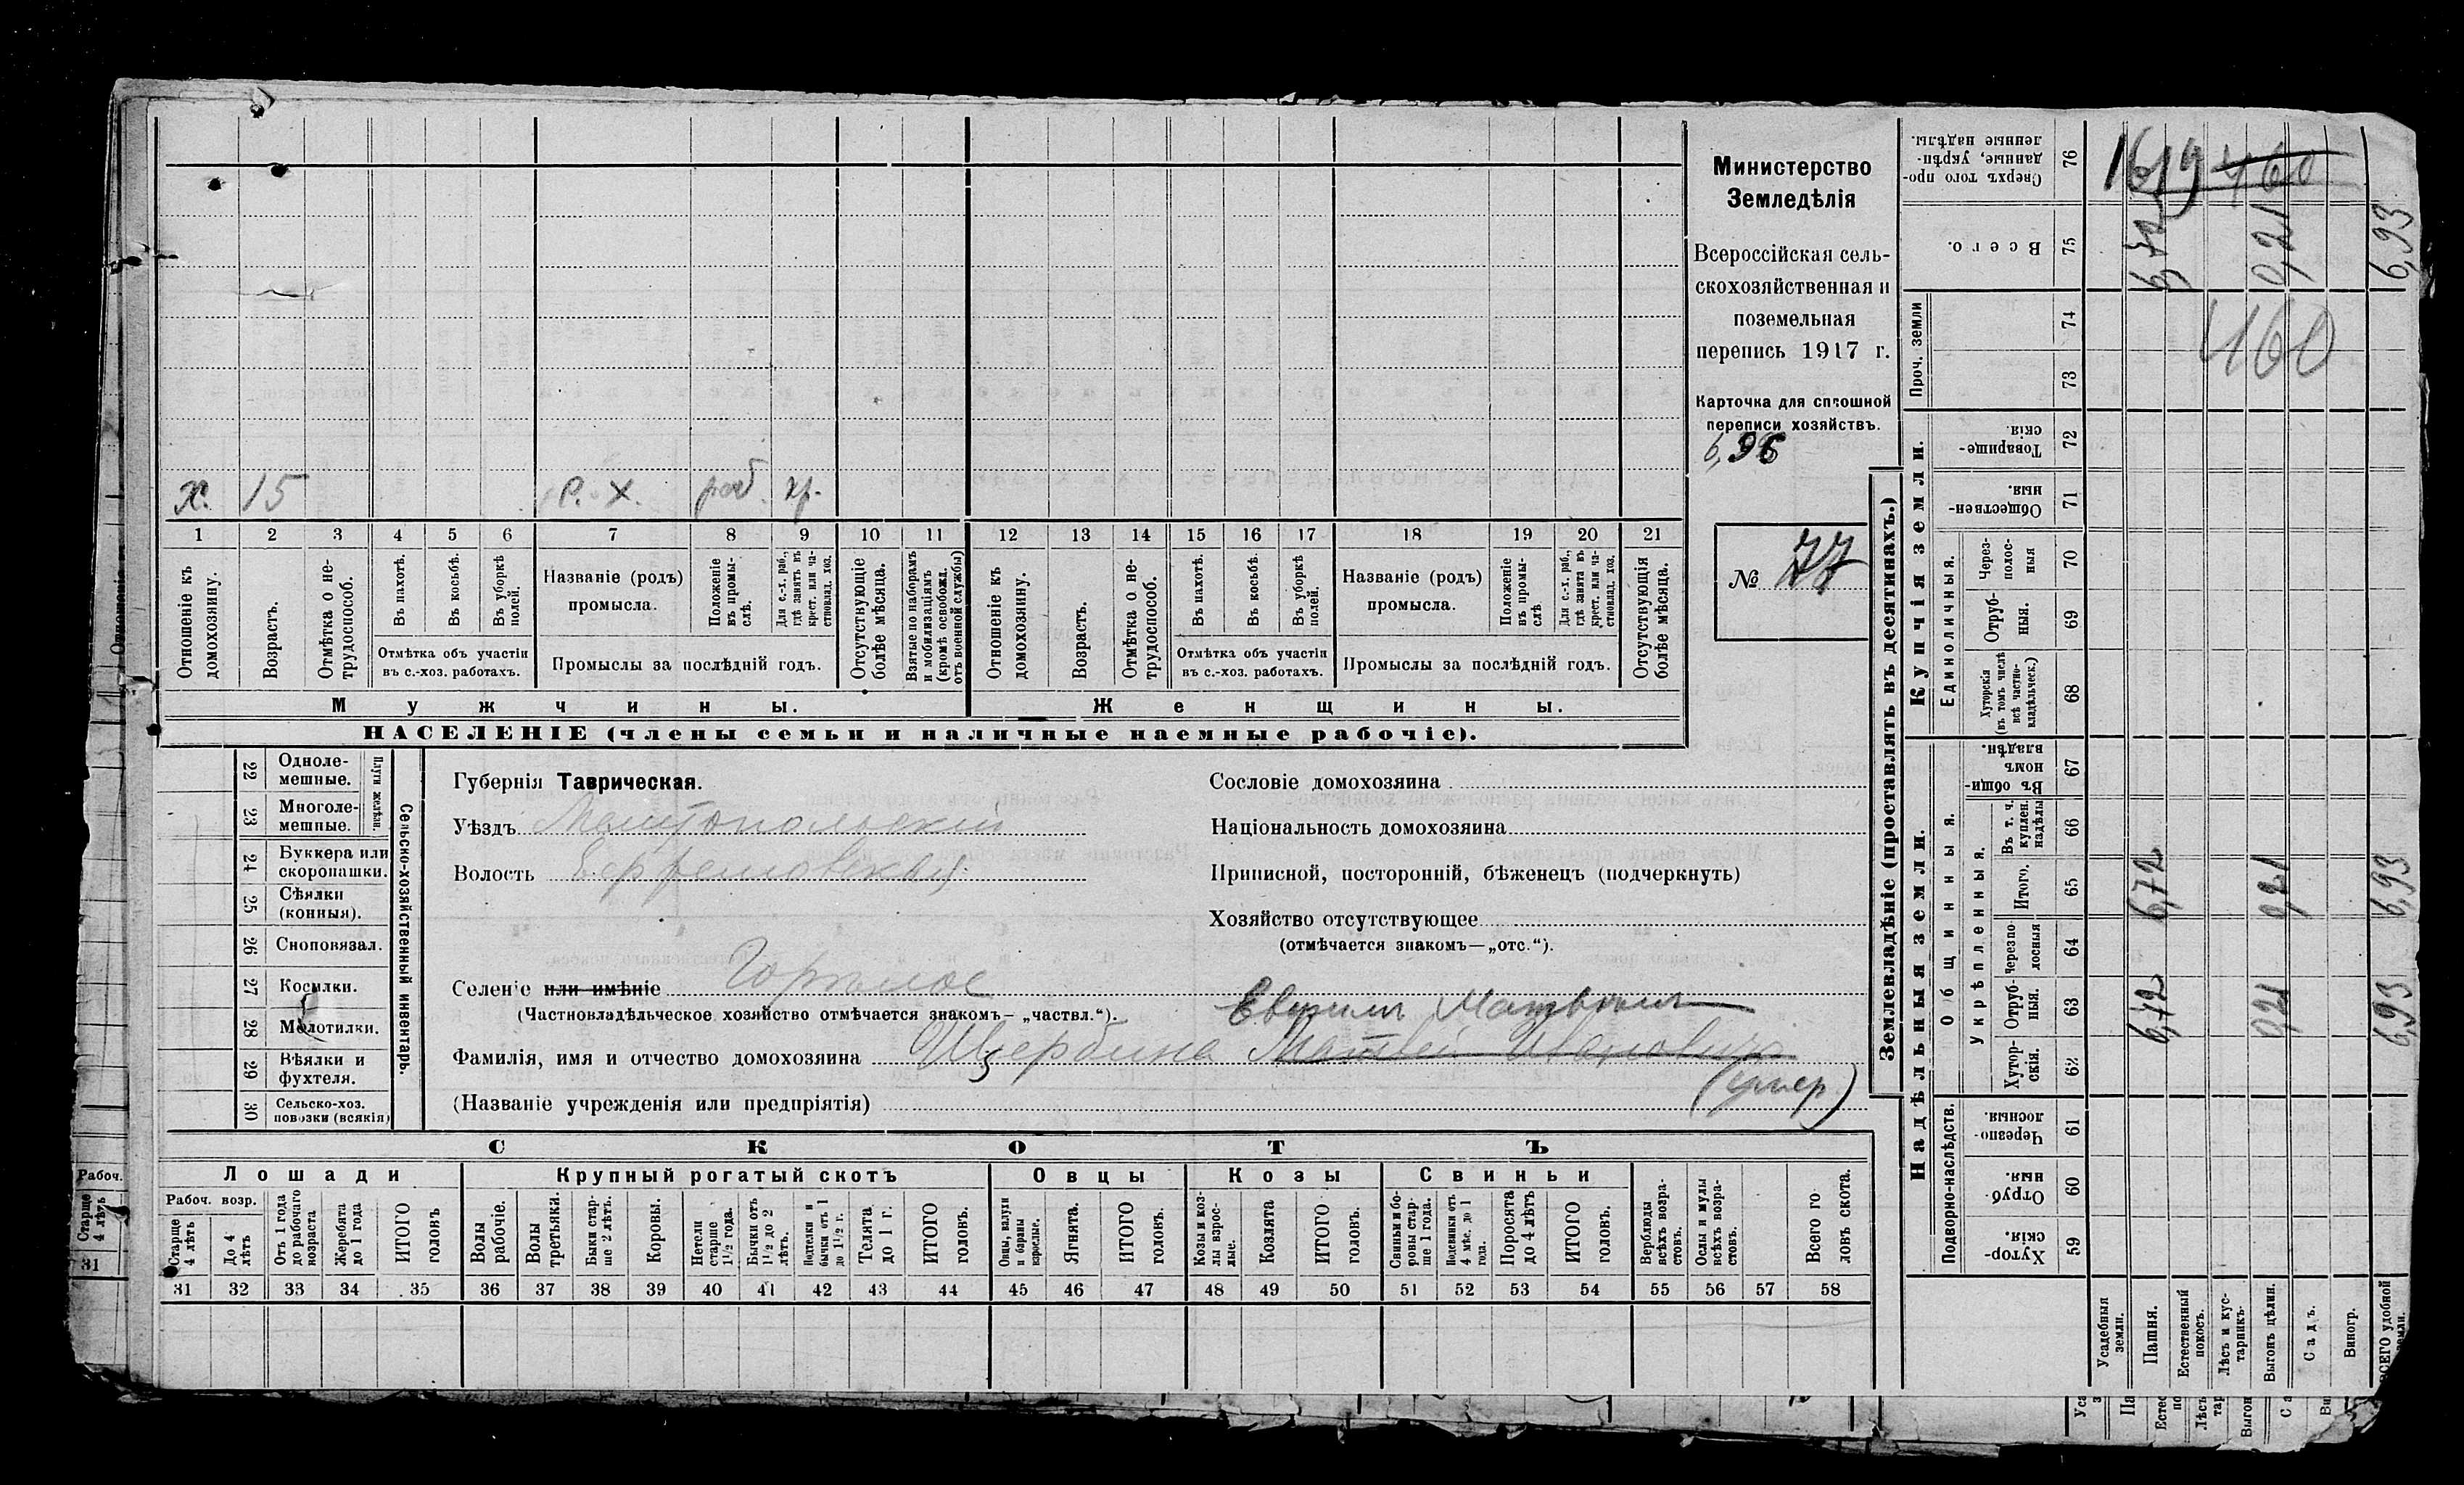 Министерство
Земледѣлія
Всероссійская сель-
скохозяйственная и
поземельная
перепись 1917 г.
Карточка для сплошной
переписи хозяйствъ.
6,96
№ 77
х. 15 с. х. раб. кр.
1 2 3 4 5 6 7 8 9 10 11 12 13 14 15 16 17 18 19 20 21
Отношеніе къ домохозяину.
Возрастъ.
Отмѣтка о не-трудоспособ.
Въ пахотѣ.
Въ косьбѣ.
Въ уборкѣ полей.
Отмѣтка объ участіи въ с.-хоз. работахъ.
Названіе (родъ) промысла.
Положеніе въ промы-слѣ.
Для с.-х. раб., гдѣ занятъ въ крест. или ча-стновлад. хоз.
Промыслы за послѣдній годъ.
Отсутствующіе болѣе мѣсяца.
Взятые по наборамъ и мобилизаціямъ (кромѣ освобожд. отъ военной службы)
Отношеніе къ домохозяину.
Возрастъ.
Отмѣтка о не-трудоспособ.
Въ пахотѣ.
Въ косьбѣ.
Въ уборкѣ полей.
Отмѣтка объ участіи въ с.-хоз. работахъ.
Названіе (родъ) промысла.
Положеніе въ промы-слѣ
Для с.-х. раб., гдѣ занята въ крест. или ча-стновлад. хоз.
Промыслы за послѣдній годъ.
Отсутствующія болѣе мѣсяца.
Мужчины.
Женщины.
НАСЕЛЕНІЕ (члены семьи и наличные наемные рабочіе).
22 Одноле-мешные.
23 Многоле-мешные.
Плуги желѣзн.
24 Буккера или скоропашки.
25 Сѣялки (конныя).
26 Сноповязал.
27 Косилки.
28 Молотилки.
29 Вѣялки и фухтеля.
30 Сельско-хоз. повозки (всякія)
Сельско-хозяйственный инвентарь.
Губернія Таврическая.
Уѣздъ Мелитопольскій
Волость Ефремовская
Селеніе или имѣніе Горѣлое
(Частновладѣльческое хозяйство отмѣчается знакомъ— „частвл.“).
Фамилія, имя и отчество домохозяина Щербина Матвей Ивановичъ
(умер.)
(Названіе учрежденія или предпріятія)
Сословіе домохозяина
Національность домохозяина
Приписной, посторонній, бѣженецъ (подчеркнуть)
Хозяйство отсутствующее
(отмѣчается знакомъ—„отс.“).
СКОТЪ
Лошади
Рабоч. возр.
Старше 4 лѣтъ
До 4 лѣтъ
Отъ 1 года до рабочаго возраста
Жеребята до 1 года
ИТОГО головъ
Крупный рогатый скотъ
Волы рабочіе.
Волы третьяки.
Быки стар-ше 2 лѣтъ.
Коровы.
Нетели старше 1½ года.
Бычки отъ 1½ до 2 лѣтъ.
Подтелки и бычки отъ 1 до 1½ г.
Телята до 1 г.
ИТОГО головъ.
Овцы
Овцы, валухи и бараны взрослые.
Ягнята.
ИТОГО головъ.
Козы
Козы и коз-лы взрос-лые.
Козлята
ИТОГО головъ.
Свиньи
Свиньи и бо-ровы стар-ше 1 года.
Подсвинки отъ 4 мѣс. до 1 года.
Поросята до 4 лѣтъ
ИТОГО головъ.
Верблюды всѣхъ возра-стовъ.
Ослы и мулы всѣхъ возра-стовъ.
Всего головъ скота.
31 32 33 34 35 36 37 38 39 40 41 42 43 44 45 46 47 48 49 50 51 52 53 54 55 56 57 58
Землевладѣніе (проставлять въ десятинахъ.)
Купчія земли.
Надѣльныя земли.
76 Сверхъ того про-данные, укрѣп-ленные надѣлы.
1619 460
75 Всего.
6,72 0,21 6,93
Проч. земли
74
73
460
72 Товарище-скія.
71 Обществен-ныя.
Единоличныя.
70 Через-полос-ныя
69 Отруб-ныя.
68 Хуторскія (въ томъ числѣ всѣ частно-владѣльческ.)
Общинныя.
67 Въ общи-номъ владѣн.
Укрѣпленныя.
66 Въ т. ч. куплен. надѣлы
65 Итого.
6,72 0,21 6,93
64 Черезпо-лосныя
63 Отруб-ныя.
6,72 0,21 6,93
62 Хутор-скія.
Подворно-наслѣдств.
61 Черезпо-лосныя.
60 Отруб-ныя.
59 Хутор-скія.
Усадебныя земли.
Пашня.
Естественный покосъ.
Лѣсъ и кус-тарникъ.
Выгонъ цѣлин.
Садъ.
Виногр.
ВСЕГО удобной земли.
Рабоч.
Старше 4 лѣтъ
31